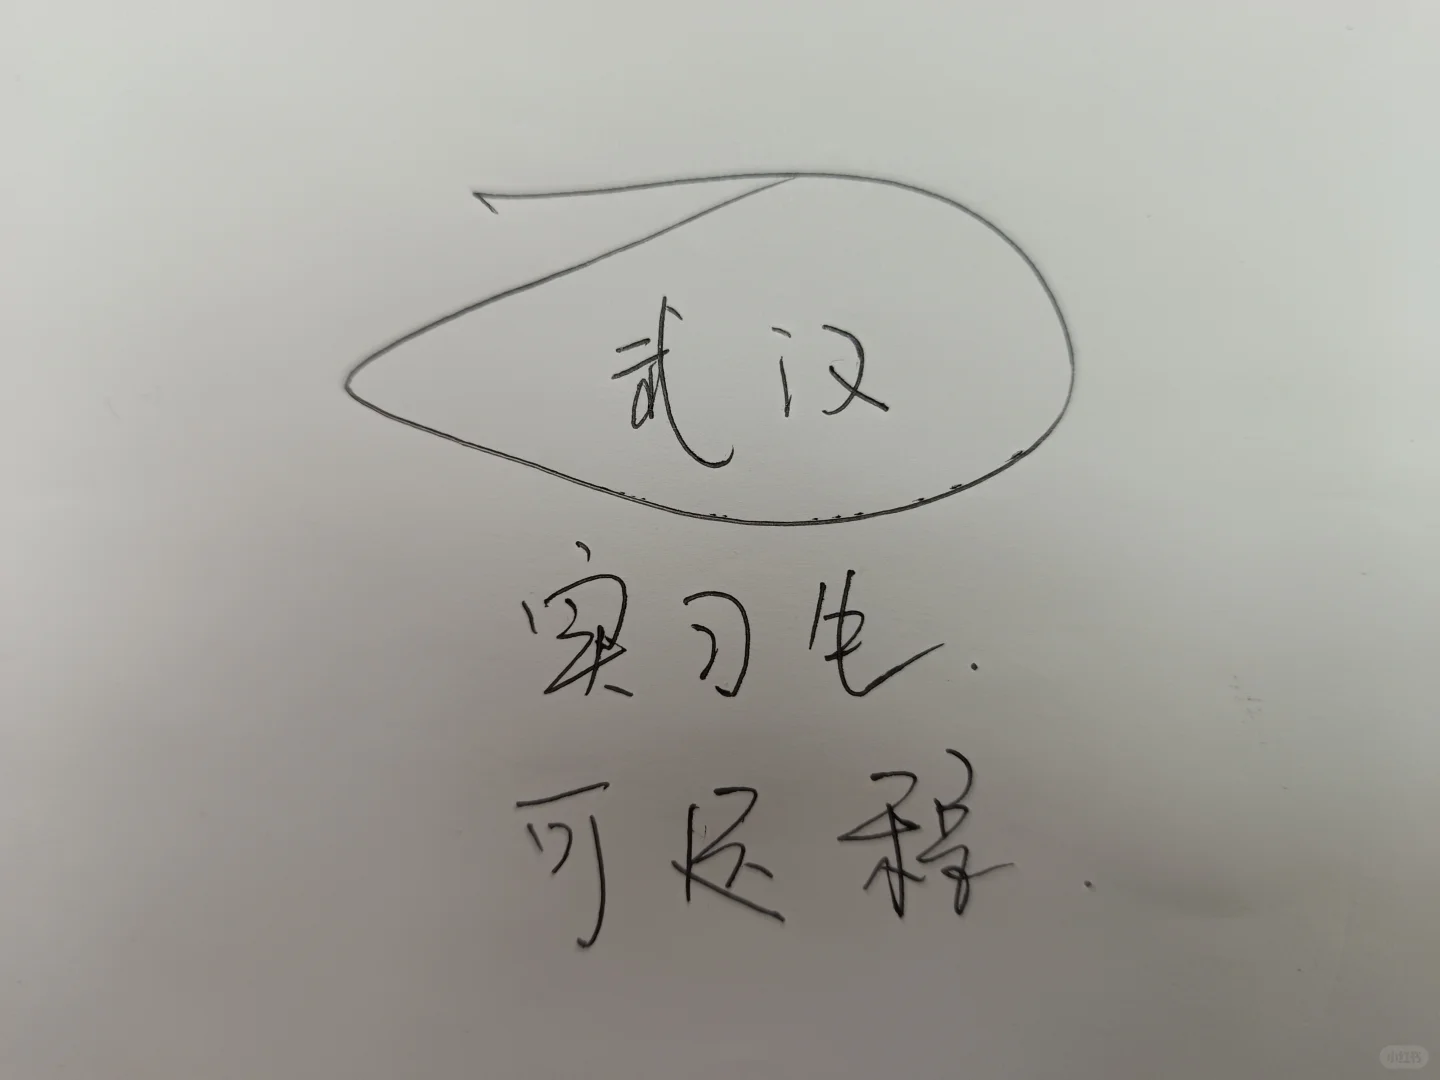 武汉
实习生.
可远程.
小红书